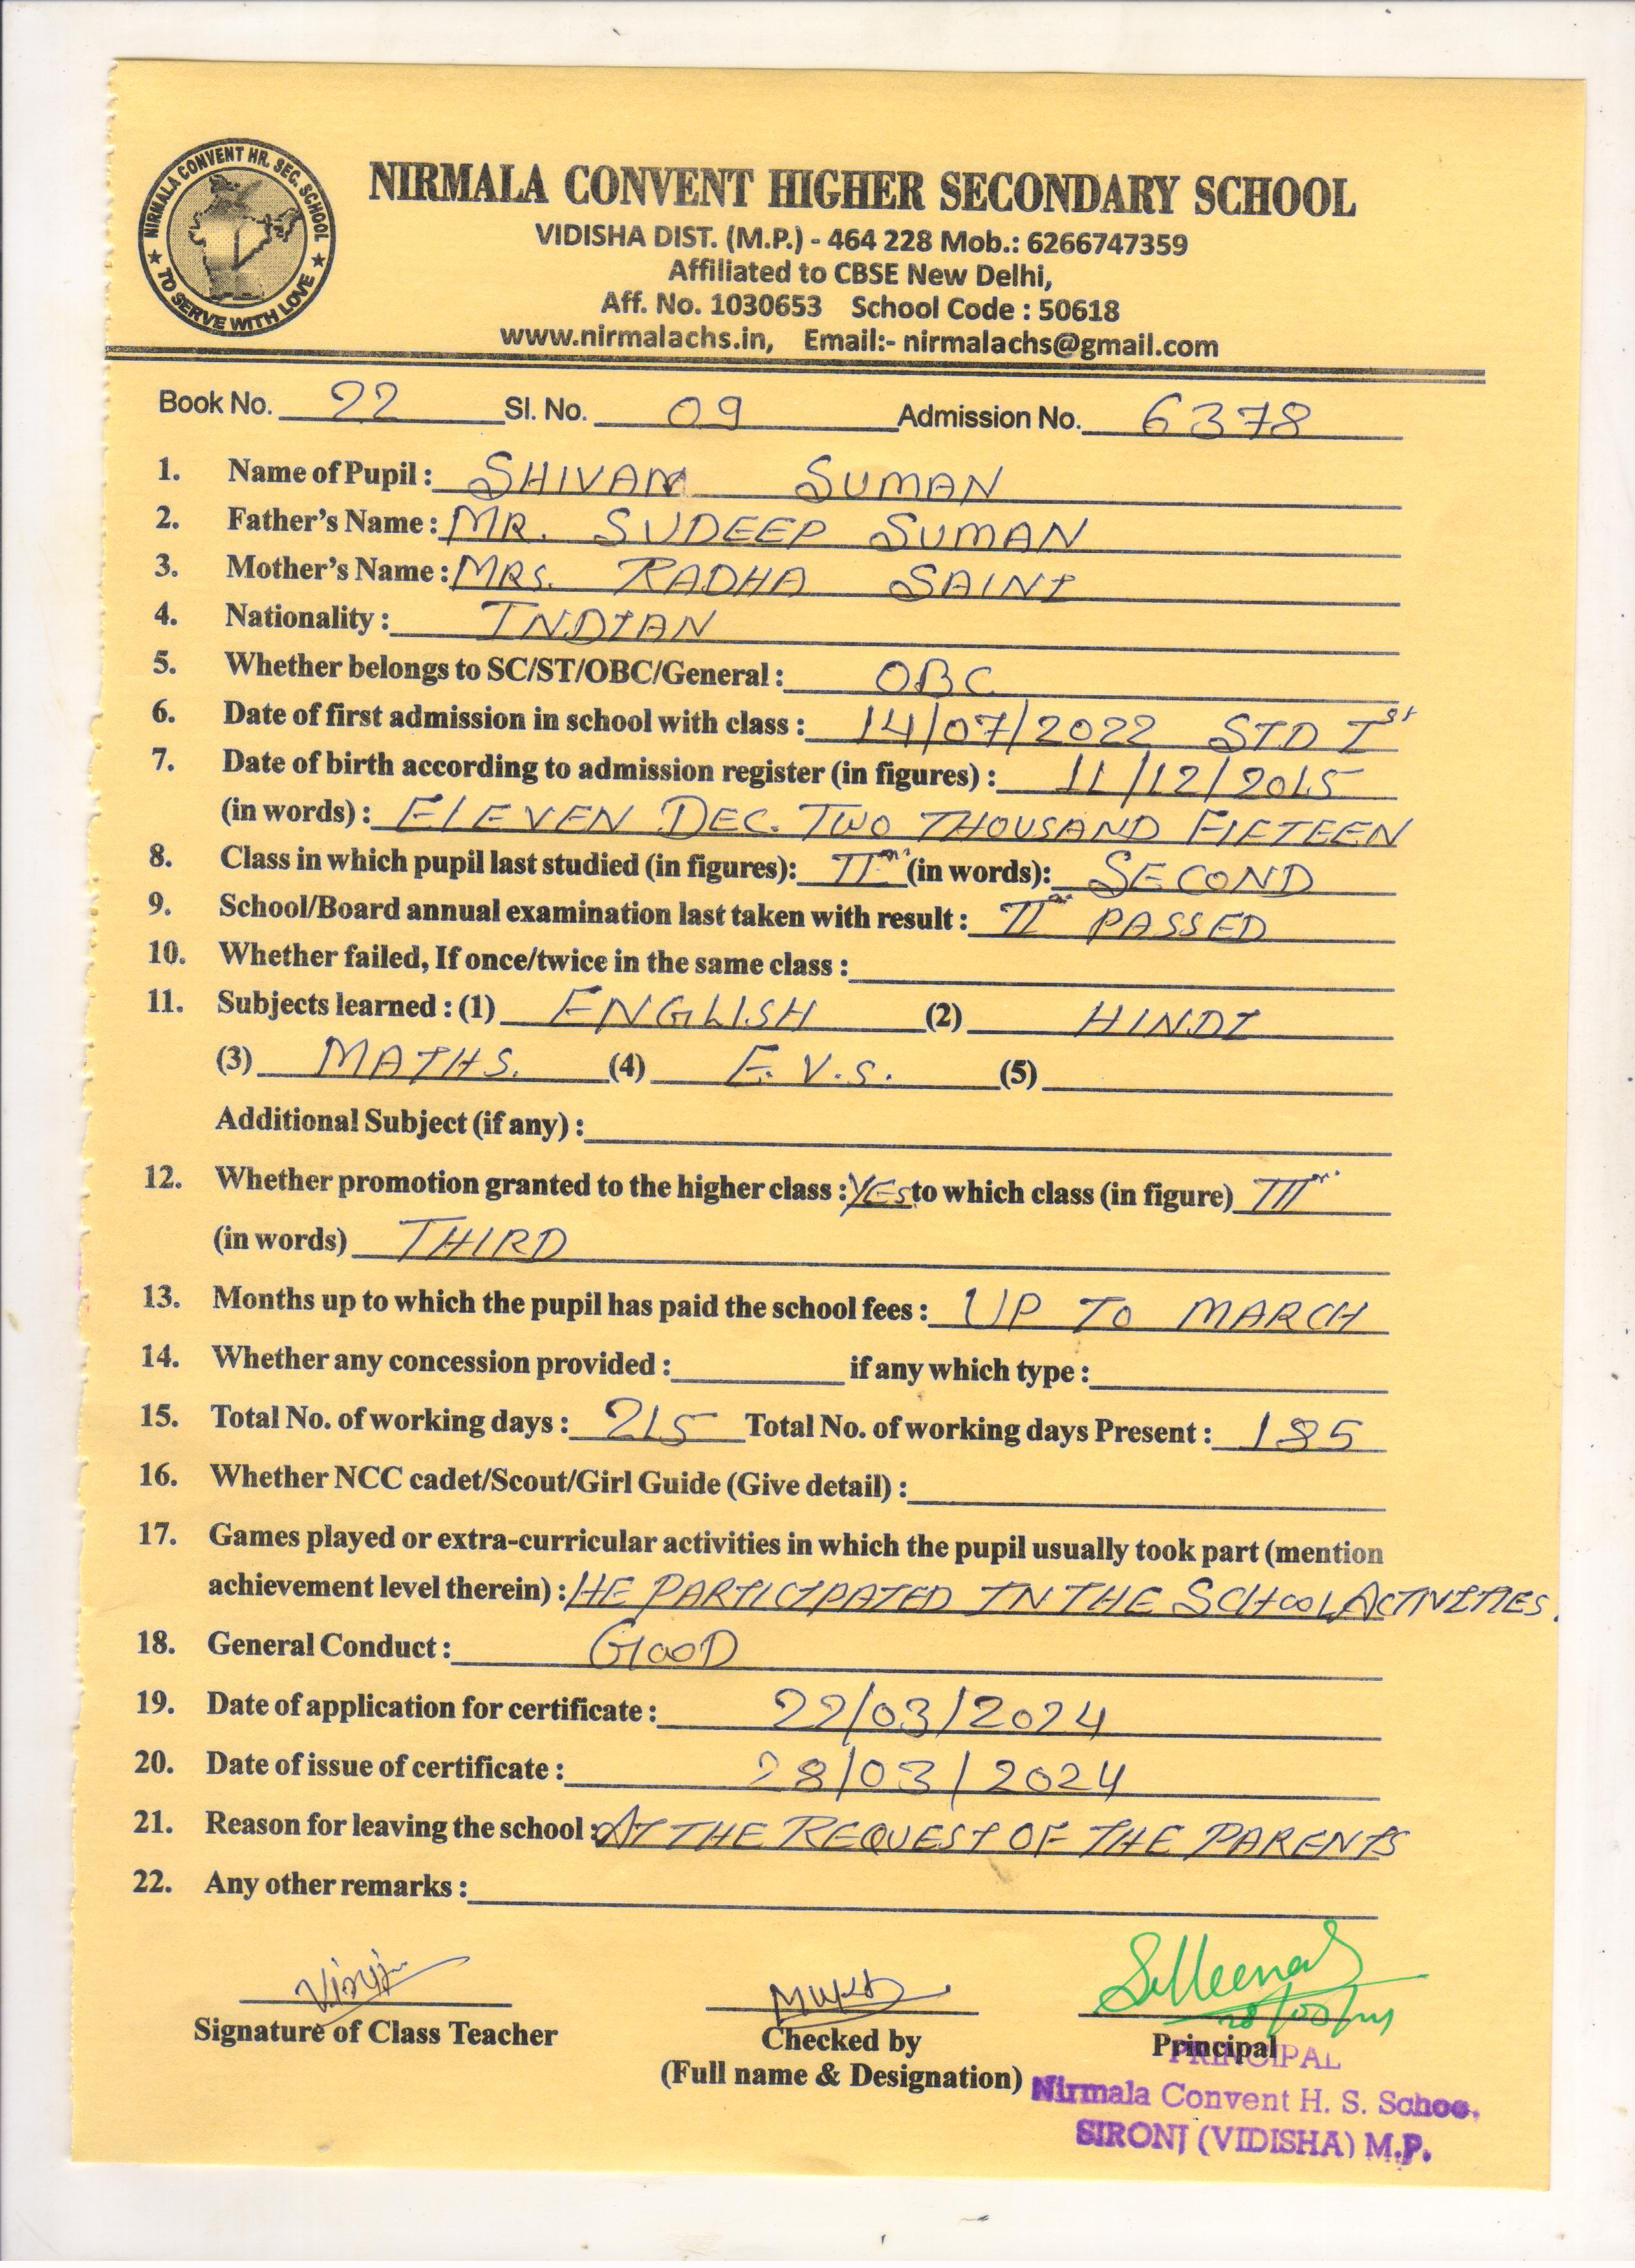 NIRMALA CONVENT HR. SEC. SCHOOL
★ TO SERVE WITH LOVE ★
NIRMALA CONVENT HIGHER SECONDARY SCHOOL
VIDISHA DIST. (M.P.) - 464 228 Mob.: 6266747359
Affiliated to CBSE New Delhi,
Aff. No. 1030653 School Code : 50618
www.nirmalachs.in, Email:- nirmalachs@gmail.com
Book No. 22 Sl. No. 09 Admission No. 6378
1. Name of Pupil : SHIVAM SUMAN
2. Father's Name : MR. SUDEEP SUMAN
3. Mother's Name : MRS. RADHA SAINI
4. Nationality : INDIAN
5. Whether belongs to SC/ST/OBC/General : OBC
6. Date of first admission in school with class : 14/07/2022 STD Ist
7. Date of birth according to admission register (in figures) : 11/12/2015
(in words) : ELEVEN DEC. TWO THOUSAND FIFTEEN
8. Class in which pupil last studied (in figures): II (in words): SECOND
9. School/Board annual examination last taken with result : II PASSED
10. Whether failed, If once/twice in the same class :
11. Subjects learned : (1) ENGLISH (2) HINDI
(3) MATHS. (4) E.V.S. (5)
Additional Subject (if any) :
12. Whether promotion granted to the higher class : YES to which class (in figure) III
(in words) THIRD
13. Months up to which the pupil has paid the school fees : UP TO MARCH
14. Whether any concession provided : if any which type :
15. Total No. of working days : 215 Total No. of working days Present : 185
16. Whether NCC cadet/Scout/Girl Guide (Give detail) :
17. Games played or extra-curricular activities in which the pupil usually took part (mention
achievement level therein) : HE PARTICIPATED IN THE SCHOOL ACTIVITIES.
18. General Conduct : GOOD
19. Date of application for certificate : 22/03/2024
20. Date of issue of certificate : 28/03/2024
21. Reason for leaving the school : AT THE REQUEST OF THE PARENTS
22. Any other remarks :
Signature of Class Teacher
Checked by
(Full name & Designation)
Principal
PRINCIPAL
Nirmala Convent H. S. Schoo.
SIRONJ (VIDISHA) M.P.